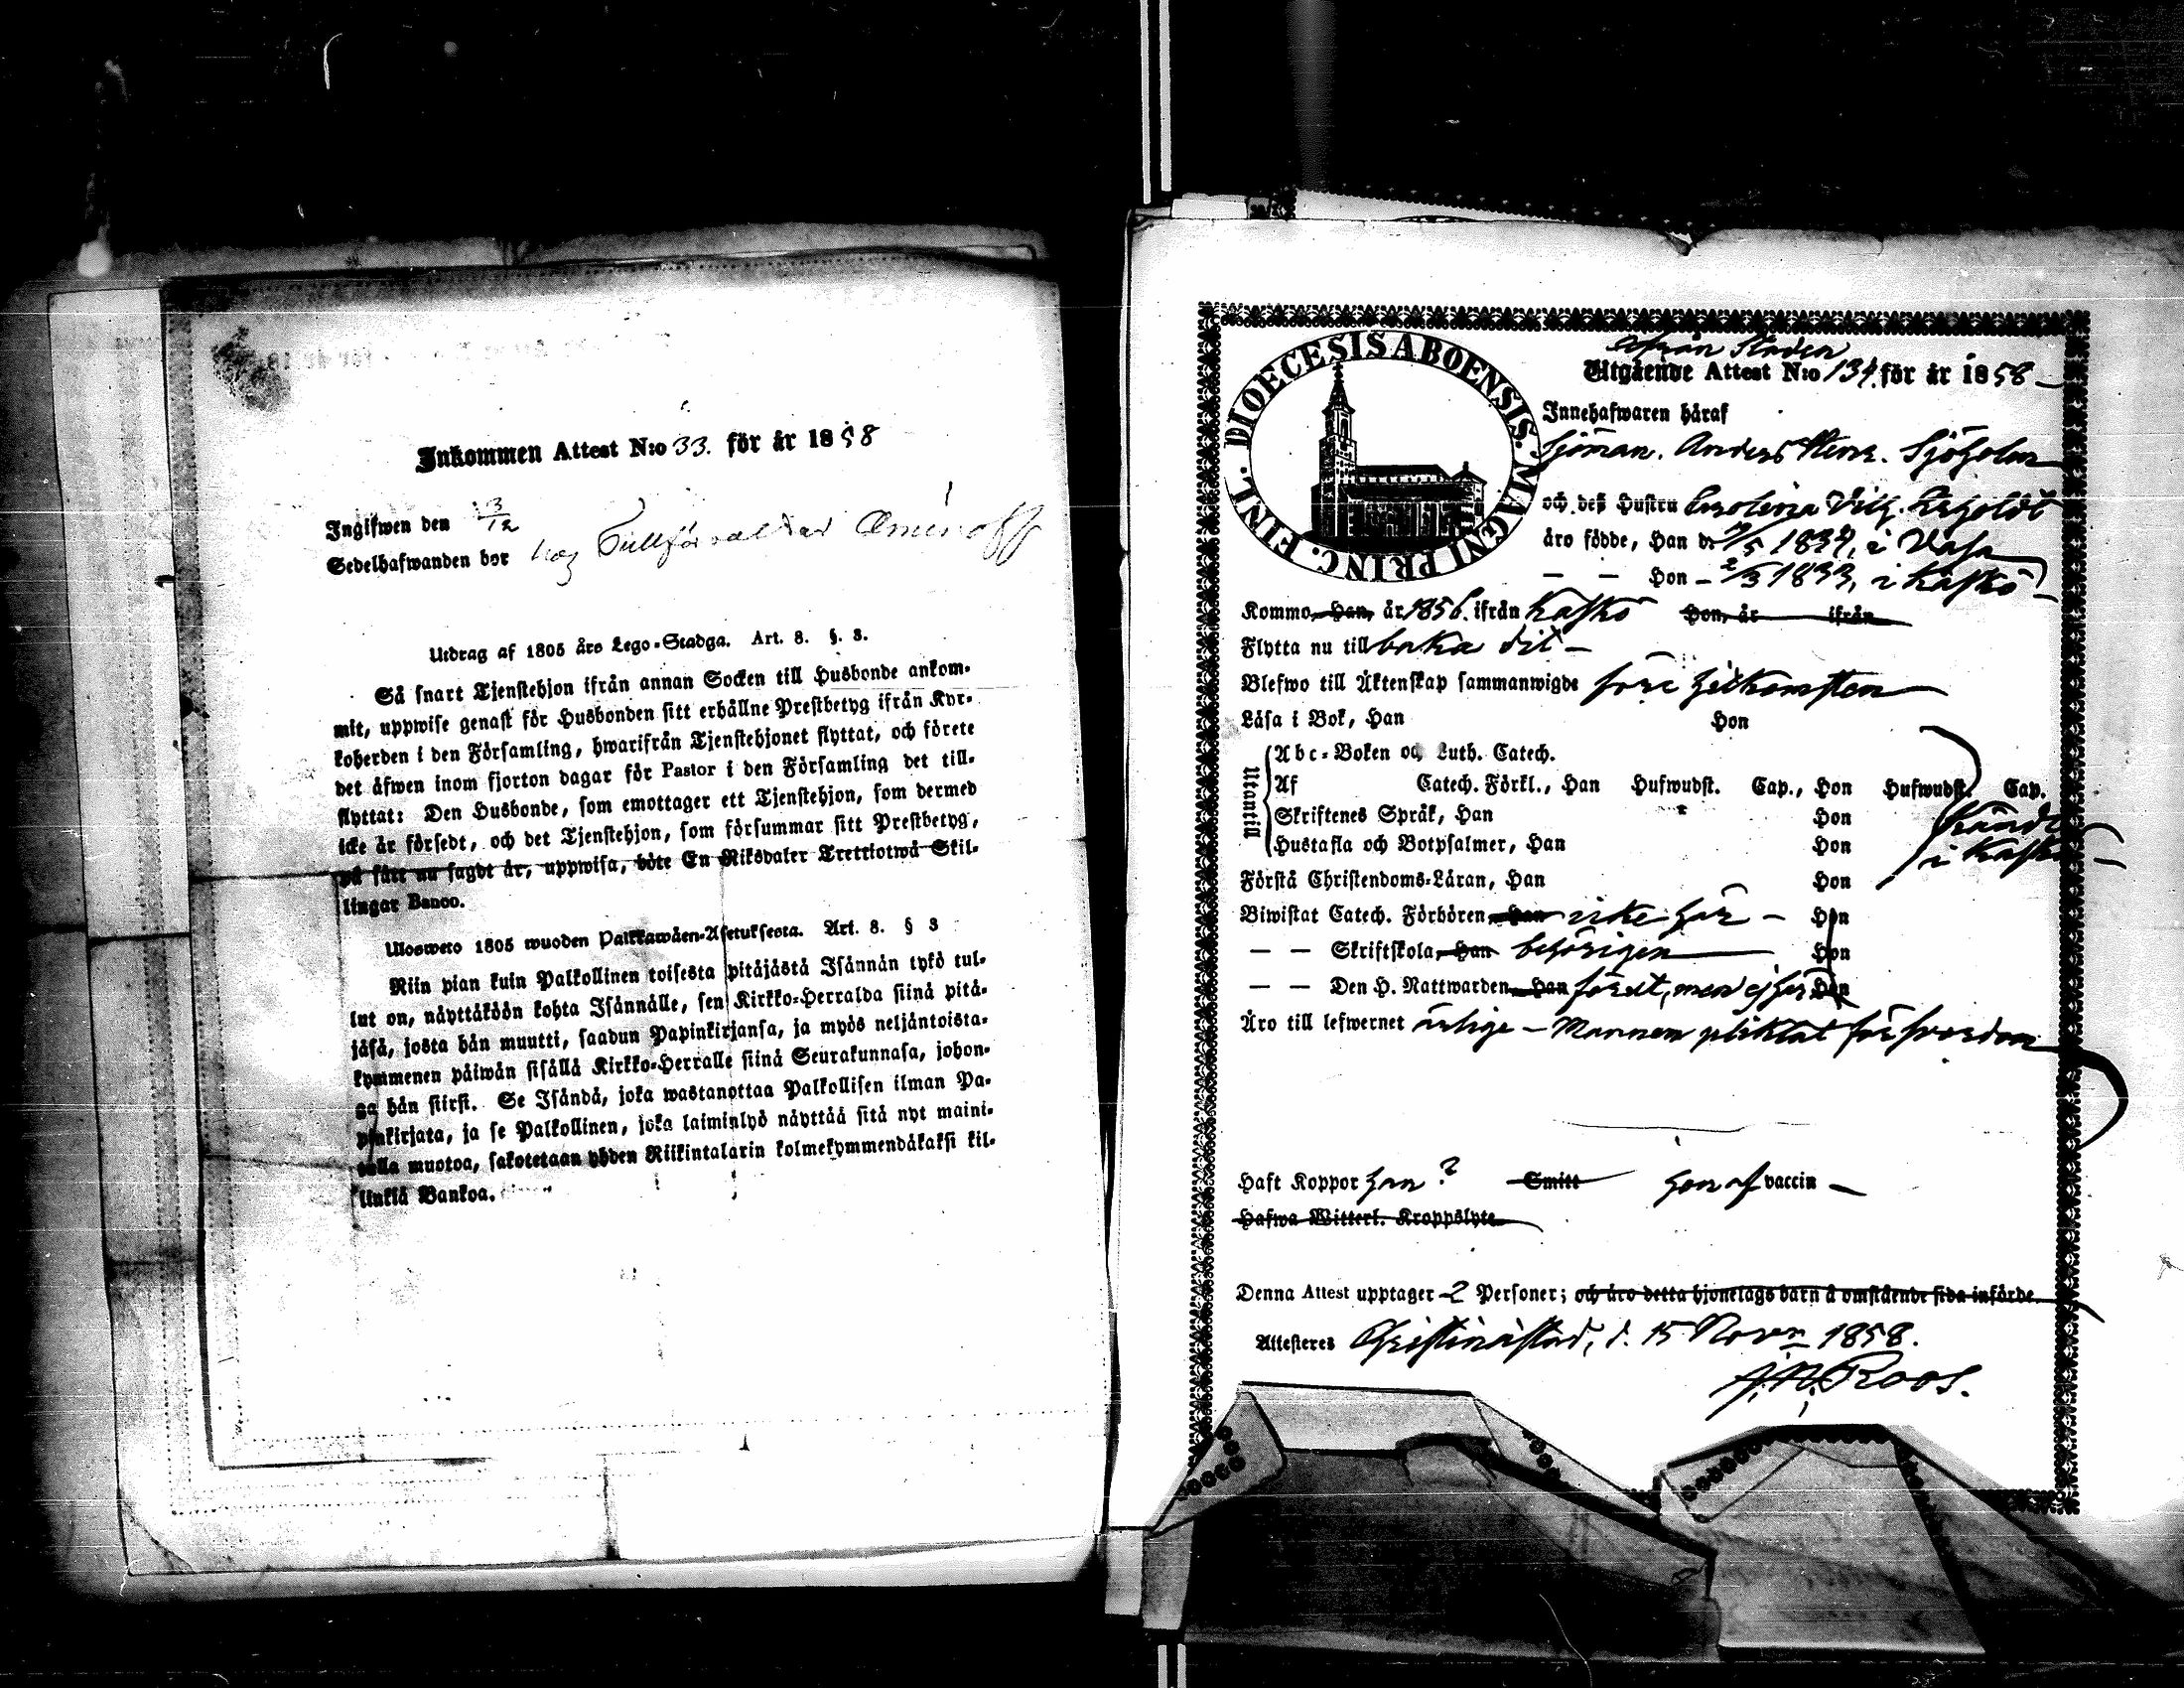 Inkommen Attest N:o 33. för år 1858
Ingifwen den 3/12
Sedelhafwanden bor hos Tullförvaltar Aminoff
Utdrag af 1805 års Lego-Stadga. Art. 8. §. 3.
Så snart Tjenstehjon ifrån annan Socken till Husbonde ankom-
mit, uppwise genast för Husbonden sitt erhållne Prestbetyg ifrån Kyr-
koherden i den Församling, hwarifrån Tjenstehjonet flyttat, och förete
det äfwen inom fjorton dagar för Pastor i den Församling det till-
flyttat: Den Husbonde, som emottager ett Tjenstehjon, som dermed
icke är försedt, och det Tjenstehjon, som försummar sitt Prestbetyg,
på sätt nu sagdt är, uppwisa, böte En Riksdaler Trettiotwå Skil-
lingar Banco.
Ulosweto 1805 wuoden Palkkawäen-Asetuksesta. Art. 8. § 3
Niin pian kuin Palkollinen toisesta pitäjästä Isännän tykö tul-
lut on, näyttäköön kohta Isännälle, sen Kirkko-Herralda siinä pitä-
jäsä, josta hän muutti, saadun Papinkirjansa, ja myös neljäntoista-
kymmenen päiwän sisällä Kirkko-Herralle siinä Seurakunnasa, johon-
ga hän siirsi. Se Isändä, joka wastanottaa Palkollisen ilman Pa-
pinkirjata, ja se Palkollinen, joka laiminlyö näyttää sitä nyt maini-
tulla muotoa, sakotetaan yhden Riikintalarin kolmekymmendäkaksi kil-
linkiä Bankoa.
FINL. DIOECESIS ABOENSIS. MAGNI PRINC.
ifrån Staden
Utgående Attest N:o 134. för år 1858
Innehafwaren häraf
Sjöman. Anders Henr. Sjöholm
och deß Hustru Carolina Vilh.
äro födde, Han d. /5 1834, i Vasa
— — Hon – 2/3 1833, i Kaskö
Kommo, Han, år 1856. ifrån Kaskö Hon, år ifrån
Flytta nu till baka dit –
Blefwo till Äktenskap sammanwigde före hitkomsten
Läsa i Bok, Han Hon
Utantill
Abc-Boken och Luth. Catech.
Af Catech. Förkl., Han Hufwudst. Cap., Hon Hufwudst. Cap.
Skriftenes Språk, Han Hon kändt
Hustafla och Botpsalmer, Han Hon i Kaskö –
Förstå Christendoms-Läran, Han Hon
Biwistat Catech. Förhören Han icke här – Hon
— — Skriftskola, Han behörigen Hon
— — Den H. Nattwarden, Han förut, men ej här Hon
Äro till lefwernet ärlige – Mannen pliktat för
Haft Koppor han ? Smitt hon af vaccin –
Hafwa Witterl. Kroppslyte
Denna Attest upptager 2 Personer; och äro detta hjonelags barn å omstående sida införde.
Attesteres Christinæstad, d. 15 Novr 1858.
J. N. Roos.